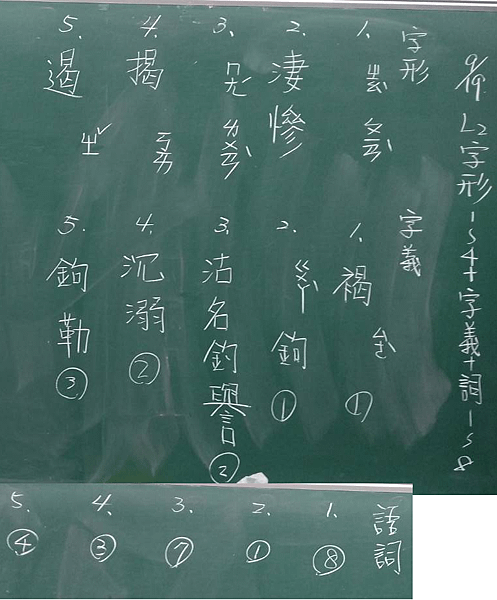 9/19. L2字形1~4+字義+詞1~8
字形
1.
2. 淒慘
3.
4. 揭
5. 遏
字義
1. 褐 ①
2. 鉤 ①
3. 沽名釣譽 ②
4. 沉溺 ②
5. 鉤勒 ③
語詞
1. ⑧
2. ①
3. ⑦
4. ③
5. ④